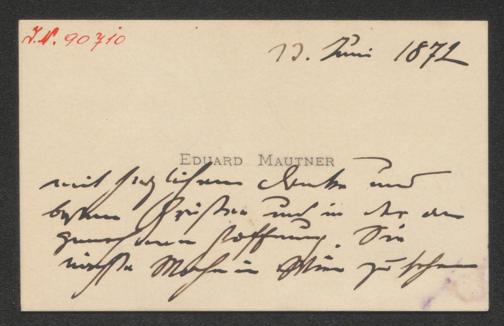 J.N. 90710
13. Juni 1872
EDUARD MAUTNER
mit herzlichem Danke und
besten Grüßen und in der an
genehmen Hoffnung, Sie
nächste Woche in Wien zu sehen